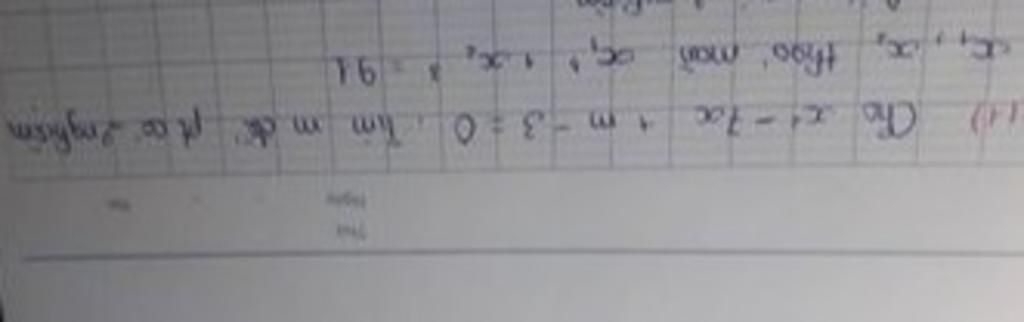 11) Cho x² - 7x + m - 3 = 0. Tìm m để pt có 2 nghiệm
x₁, x₂ thoả mãn x₁³ + x₂³ = 91